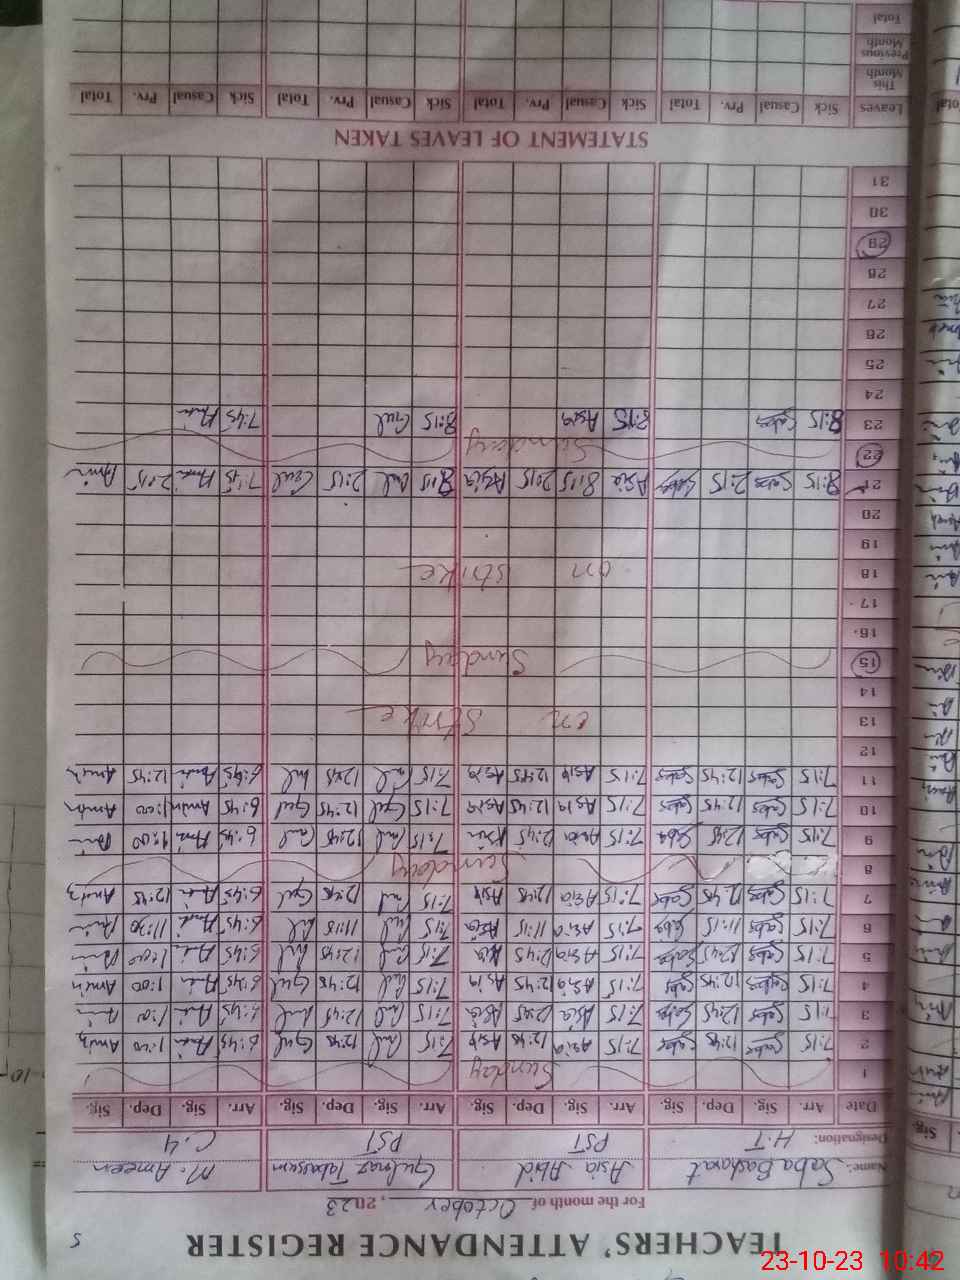 TEACHERS' ATTENDANCE REGISTER 5
For the month of October, 2023
Name: Saba Basharat Asia Abid Gulnaz Tabassum M. Ameen
Designation: H.T PST PST C.4
Date Arr. Sig. Dep. Sig. Arr. Sig. Dep. Sig. Arr. Sig. Dep. Sig. Arr. Sig. Dep. Sig.
1 Sunday
2 7:15 Saba 12:45 Saba 7:15 Asia 12:45 Asia 7:15 Gul 12:45 Gul 6:45 Amin 1:00 Amin
3 7:15 Saba 12:45 Saba 7:15 Asia 12:45 Asia 7:15 Gul 12:45 Gul 6:45 Amin 1:00 Amin
4 7:15 Saba 12:45 Saba 7:15 Asia 12:45 Asia 7:15 Gul 12:45 Gul 6:45 Amin 1:00 Amin
5 7:15 Saba 12:45 Saba 7:15 Asia 12:45 Asia 7:15 Gul 12:45 Gul 6:45 Amin 1:00 Amin
6 7:15 Saba 11:15 Saba 7:15 Asia 11:15 Asia 7:15 Gul 11:15 Gul 6:45 Amin 11:30 Amin
7 7:15 Saba 12:45 Saba 7:15 Asia 12:45 Asia 7:15 Gul 12:45 Gul 6:45 Amin 12:45 Amin
8 Sunday
9 7:15 Saba 12:45 Saba 7:15 Asia 12:45 Asia 7:15 Gul 12:45 Gul 6:45 Amin 1:00 Amin
10 7:15 Saba 12:45 Saba 7:15 Asia 12:45 Asia 7:15 Gul 12:45 Gul 6:45 Amin 1:00 Amin
11 7:15 Saba 12:45 Saba 7:15 Asia 12:45 Asia 7:15 Gul 12:45 Gul 6:45 Amin 12:45 Amin
12
13 on strike
14
15 Sunday
16
17
18 on strike
19
20
21 8:15 Saba 2:15 Saba Asia 8:15 2:15 Asia 8:15 Gul 2:15 Gul 7:45 Amin 2:15 Amin
22 Sunday
23 8:15 Saba 8:15 Asia 8:15 Gul 7:45 Amin
24
25
26
27
28
29
30
31
STATEMENT OF LEAVES TAKEN
Leaves Sick Casual Prv. Total Sick Casual Prv. Total Sick Casual Prv. Total Sick Casual Prv. Total
This Month
Previous Month
Total
23-10-23 10:42